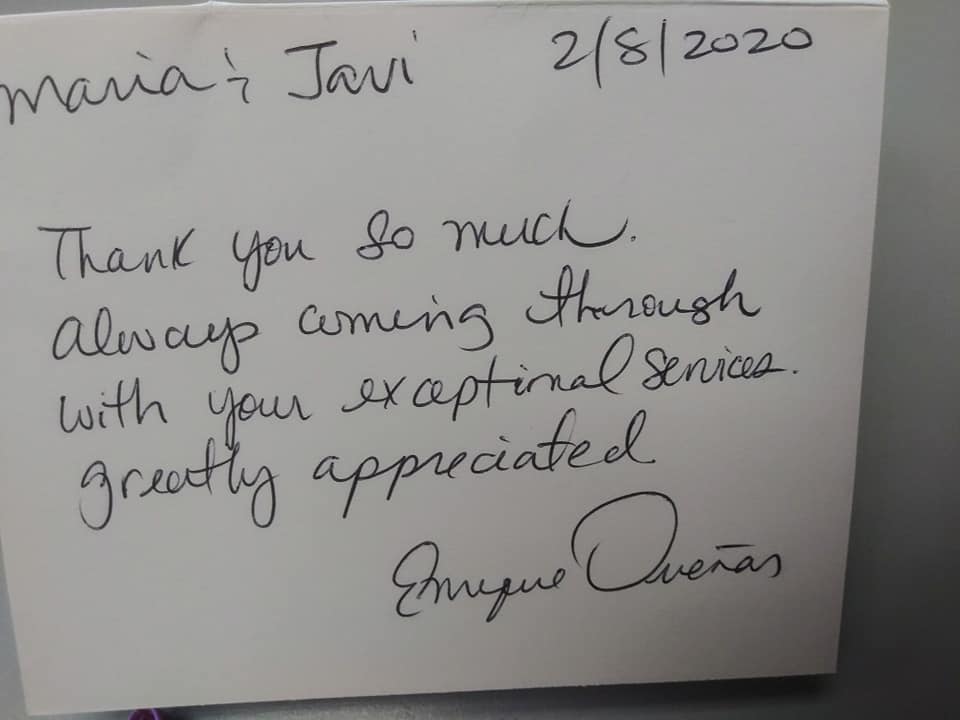 Maria & Javi 2/8/2020
Thank you so much.
always coming through
with your exceptional services.
greatly appreciated
Enrique Dueñas